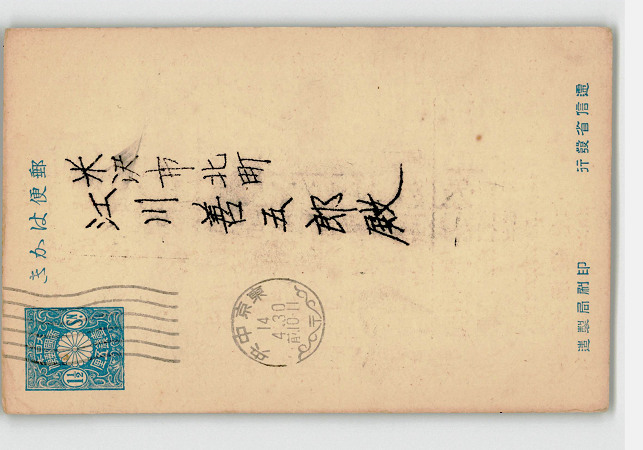 郵便はかき
米沢市北町
江川善五郎殿
東京中央
14
4.30
前10-11
1½
Sⁿ
遞信省發行
印刷局製造